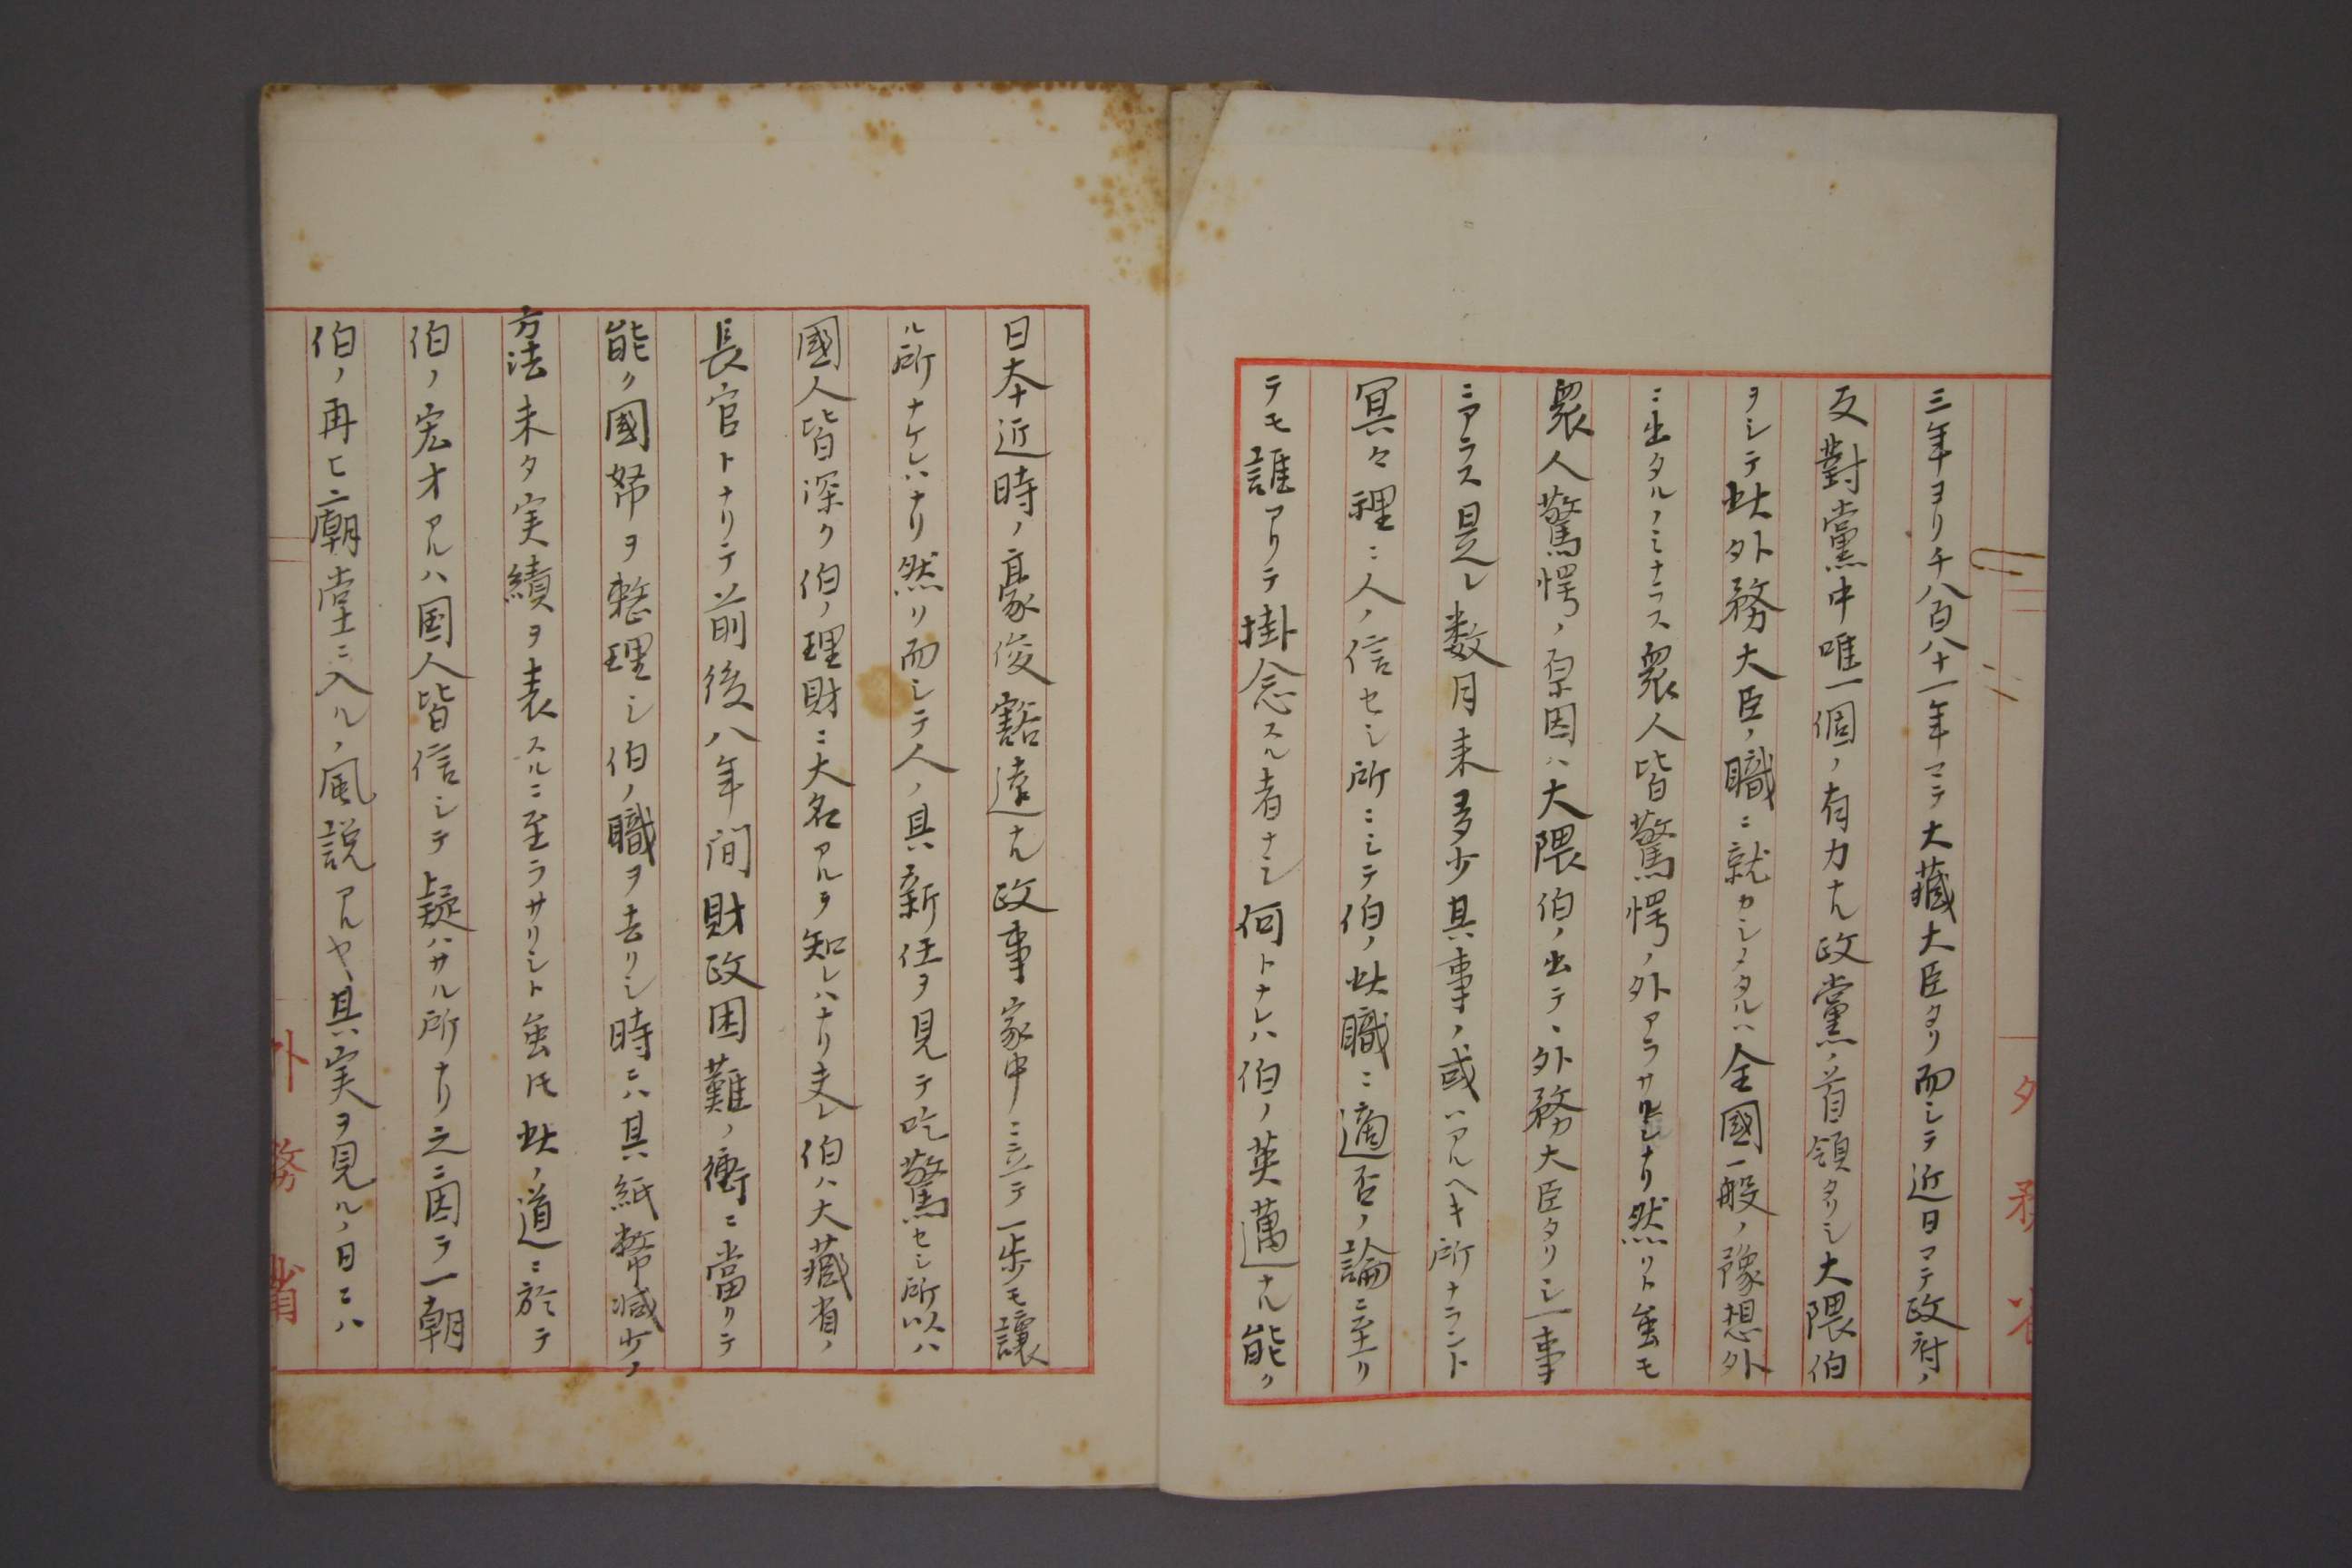 三年ヨリ千八百八十一年マテ大藏大臣タリ而シテ近日マテ政府ノ
反對黨中唯一個ノ有力ナル政黨ノ首領タリシ大隈伯
ヲシテ此外務大臣ノ職ニ就カシメタルハ全國一般ノ豫想外
ニ出タルノミナラス衆人皆驚愕ノ外アラサルナリ然リト雖モ
衆人驚愕ノ原因ハ大隈伯ノ出テヽ外務大臣タリシ一事
ニアラス是レ数月来多少其事ノ或ハアルヘキ所ナラント
冥々裡ニ人ノ信セシ所ニシテ伯ノ此職ニ適否ノ論ニ至リ
テモ誰アリテ掛念スル者ナシ何トナレハ伯ノ英邁ナル能ク
日本近時ノ豪俊豁達ナル政事家中ニ立テ一歩モ讓
ル所ナケレハナリ然リ而シテ人ノ其新任ヲ見テ吃驚セシ所以ハ
國人皆深ク伯ノ理財ニ大名アルヲ知レハナリ夫レ伯ハ大藏省ノ
長官トナリテ前後八年間財政困難ノ衝ニ當リテ
能ク國帑ヲ整理シ伯ノ職ヲ去リシ時ニハ其紙幣減少ノ
方法未タ実績ヲ表スルニ至ラサリシト雖モ此ノ道ニ於テ
伯ノ宏才アルハ国人皆信シテ疑ハサル所ナリ之ニ因テ一朝
伯ノ再ヒ廟堂ニ入ルノ風説アルヤ其実ヲ見ルノ日ニハ
外務省